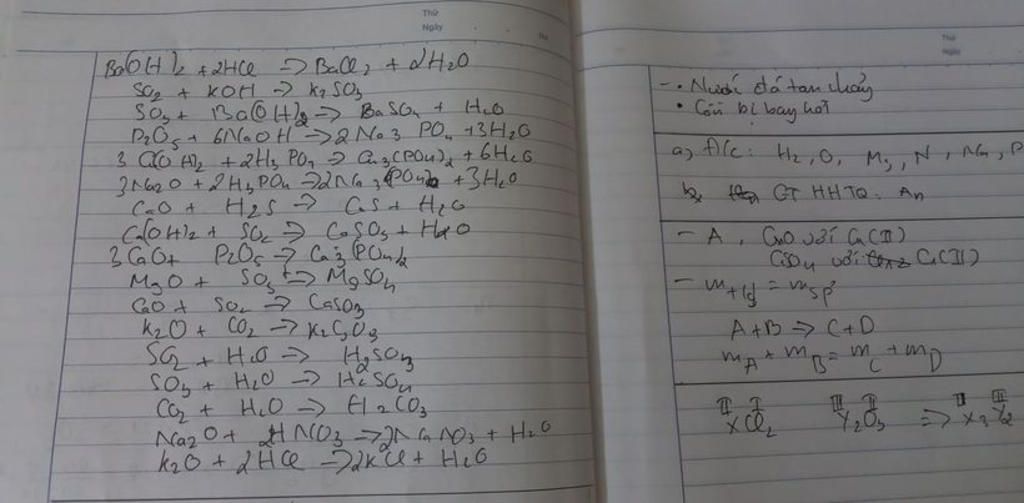 Thứ
Ngày
Ba(OH)2 + 2HCl → BaCl2 + 2H2O
SO2 + KOH → K2SO3
SO3 + Ba(OH)2 → BaSO4 + H2O
P2O5 + 6NaOH → 2Na3PO4 + 3H2O
3Ca(OH)2 + 2H3PO4 → Ca3(PO4)2 + 6H2O
3Na2O + 2H3PO4 → 2Na3PO4 + 3H2O
CaO + H2S → CaS + H2O
Ca(OH)2 + SO2 → CaSO3 + H2O
3CaO + P2O5 → Ca3(PO4)2
MgO + SO3 → MgSO4
CaO + SO2 → CaSO3
K2O + CO2 → K2CO3
SO2 + H2O → H2SO3
SO3 + H2O → H2SO4
CO2 + H2O → H2CO3
Na2O + 2HNO3 → 2NaNO3 + H2O
K2O + 2HCl → 2KCl + H2O
Thứ
Ngày
- • Nước đá tan chảy
• Cồn bị bay hơi
a, đ/c: H2, O, Mg, N, Na, P
b, CT HHTQ: An
- A, CuO với Cu(II)
CuSO4 với Cu(II)
- m t/g = m sp
A + B → C + D
mA + mB = mC + mD
II I III II II III
XCl2 Y2O3 ⇒ X3Y2